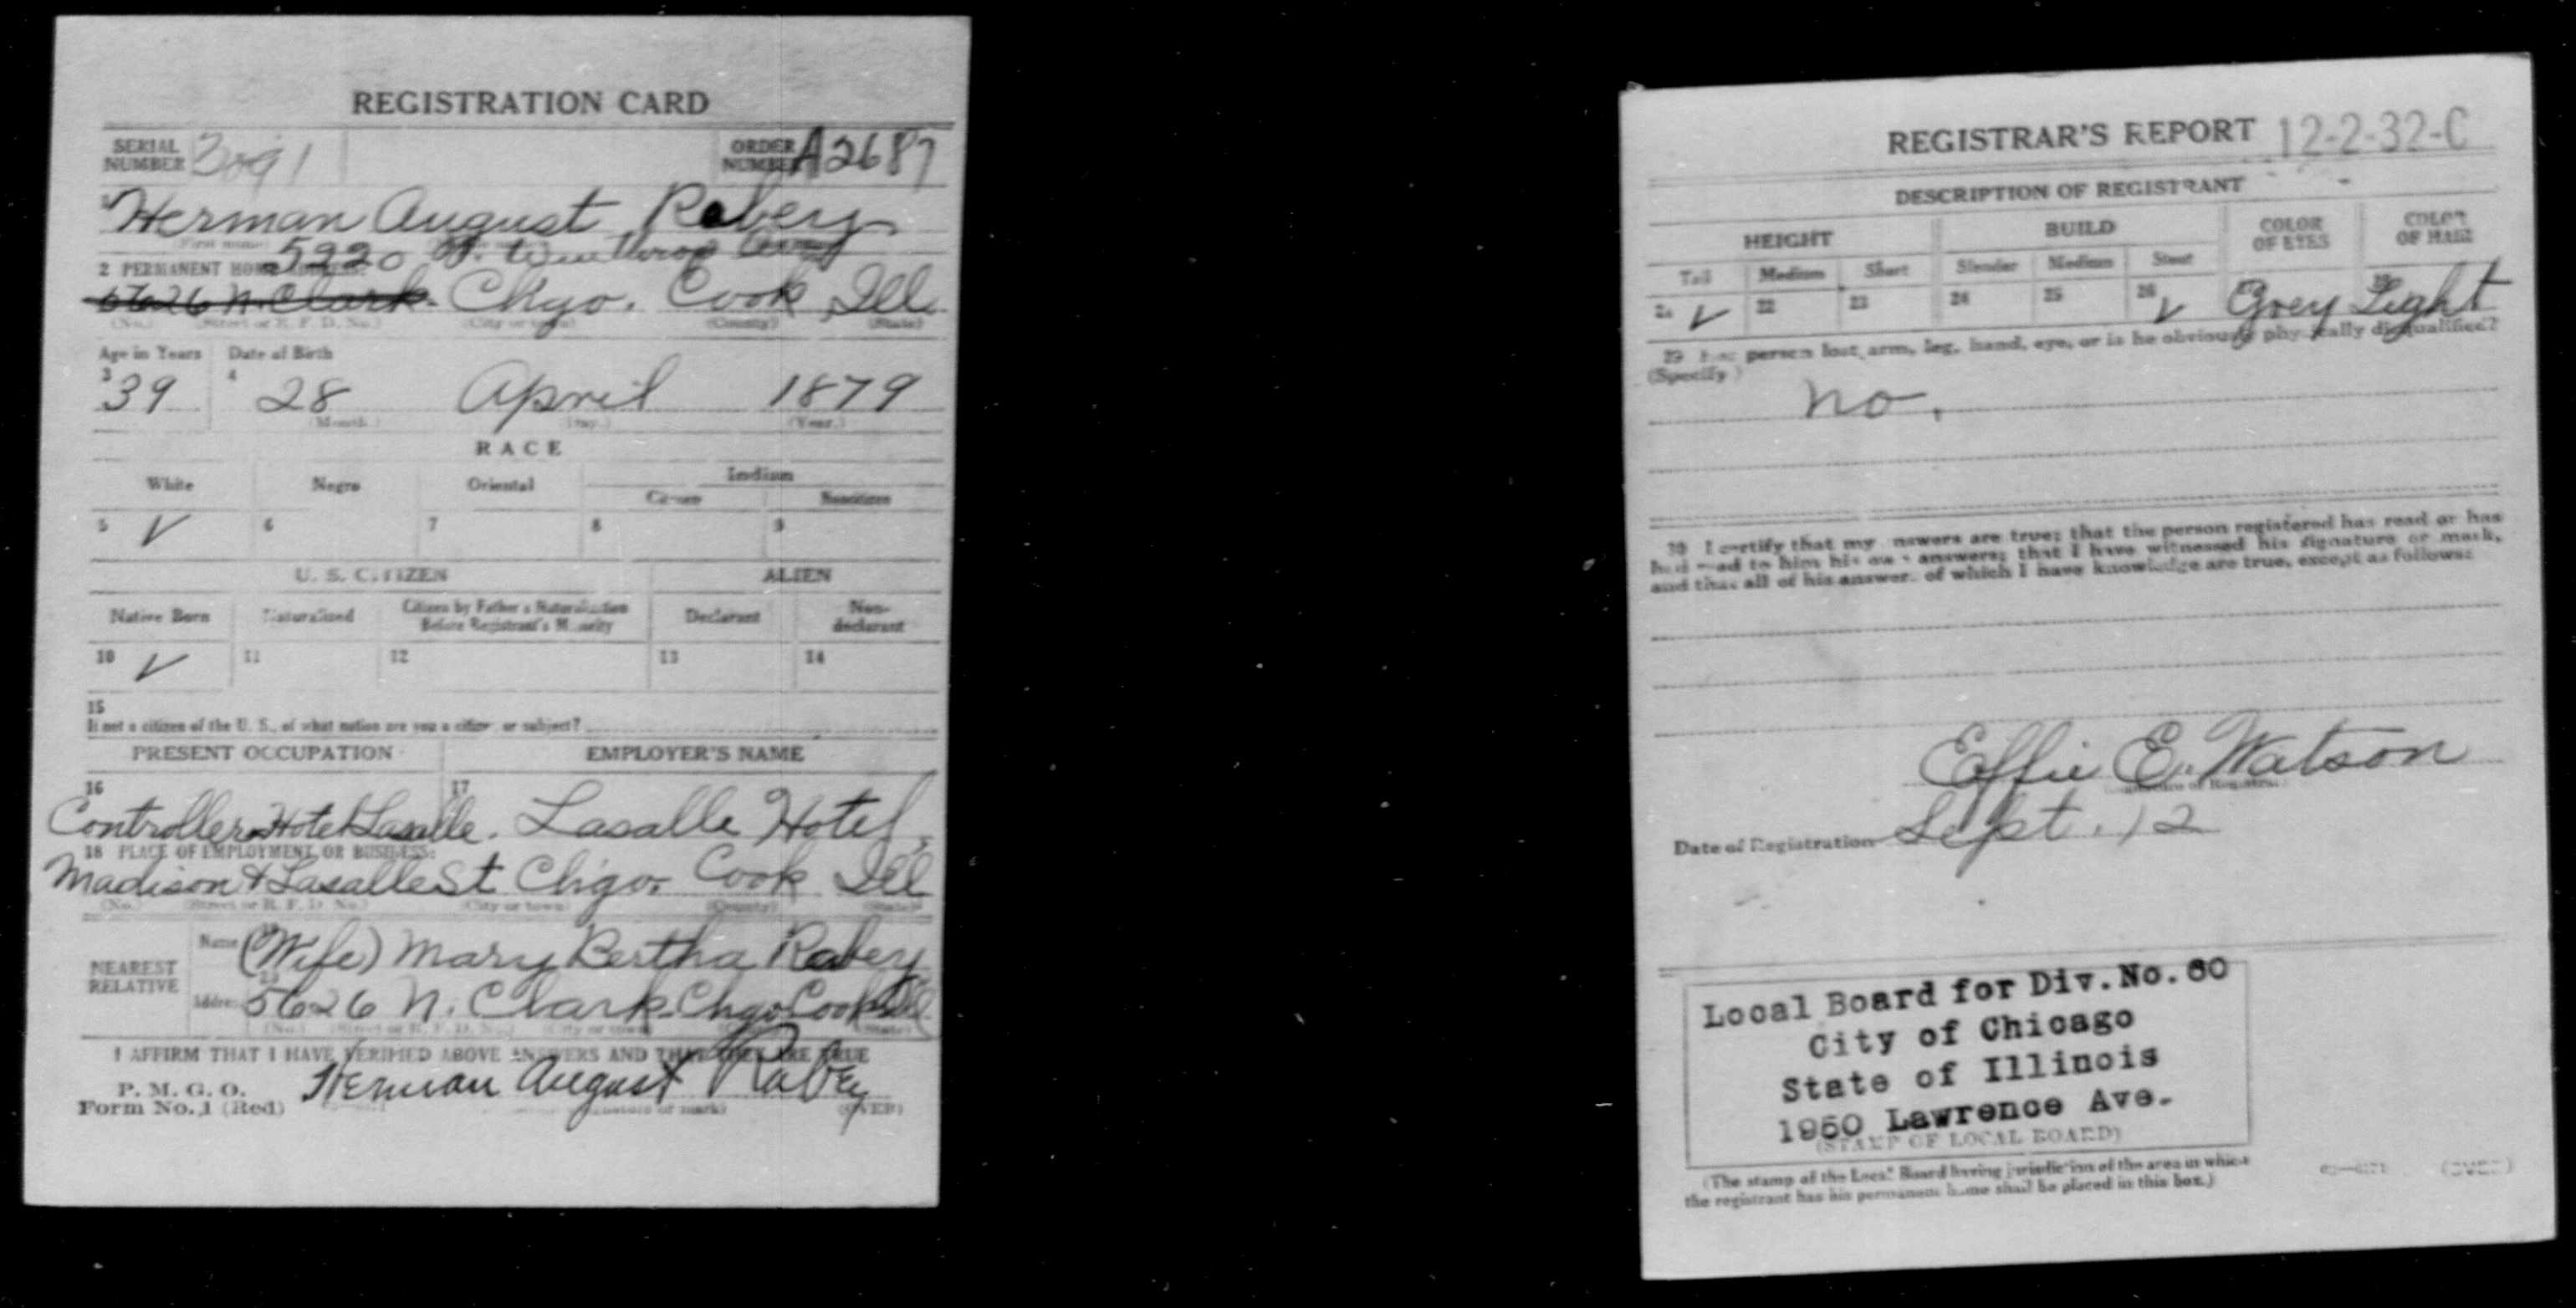 REGISTRATION CARD
SERIAL NUMBER 3091 ORDER NUMBER A2687
1 Herman August Rabey
(First name)
5920 N. Winthrop
2 PERMANENT HOME ADDRESS:
5626 N. Clark. Chgo. Cook Ill
(No.) (Street or R. F. D. No.) (City or town) (County) (State)
Age in Years Date of Birth
3 39 4 28 April 1879
(Month.) (Day.) (Year.)
RACE
White Negro Oriental Indian
Citizen Noncitizen
5 ✓ 6 7 8 9
U. S. CITIZEN ALIEN
Native Born Naturalized Citizen by Father's Naturalization Before Registrant's Majority Declarant Non-declarant
10 ✓ 11 12 13 14
15
If not a citizen of the U. S., of what nation are you a citizen or subject?
PRESENT OCCUPATION EMPLOYER'S NAME
16 17
Controller Hotel Lasalle. Lasalle Hotel,
18 PLACE OF EMPLOYMENT OR BUSINESS:
Madison & Lasalle St Chgo. Cook Ill
(No.) (Street or R. F. D. No.) (City or town) (County) (State)
NEAREST RELATIVE
Name 19 (Wife) Mary Bertha Rabey
Address 5626 N. Clark Chgo Cook Ill
(No.) (Street or R. F. D. No.) (City or town) (State)
I AFFIRM THAT I HAVE VERIFIED ABOVE ANSWERS AND THAT THEY ARE TRUE
P. M. G. O.
Form No. 1 (Red) Herman August Rabey
(Signature or mark) (OVER)
REGISTRAR'S REPORT 12-2-32-C
DESCRIPTION OF REGISTRANT
HEIGHT BUILD COLOR OF EYES COLOR OF HAIR
Tall Medium Short Slender Medium Stout
21 ✓ 22 23 24 25 26 ✓ 27 Grey 28 Light
29 Has person lost arm, leg, hand, eye, or is he obviously physically disqualified?
(Specify.)
no.
30 I certify that my answers are true; that the person registered has read or has
had read to him his own answers; that I have witnessed his signature or mark,
and that all of his answers of which I have knowledge are true, except as follows:
Effie E. Watson
(Signature of Registrar)
Date of Registration Sept. 12
Local Board for Div. No. 60
City of Chicago
State of Illinois
1950 Lawrence Ave.
(STAMP OF LOCAL BOARD)
(The stamp of the Local Board having jurisdiction of the area in which
the registrant has his permanent home shall be placed in this box.)
(OVER)